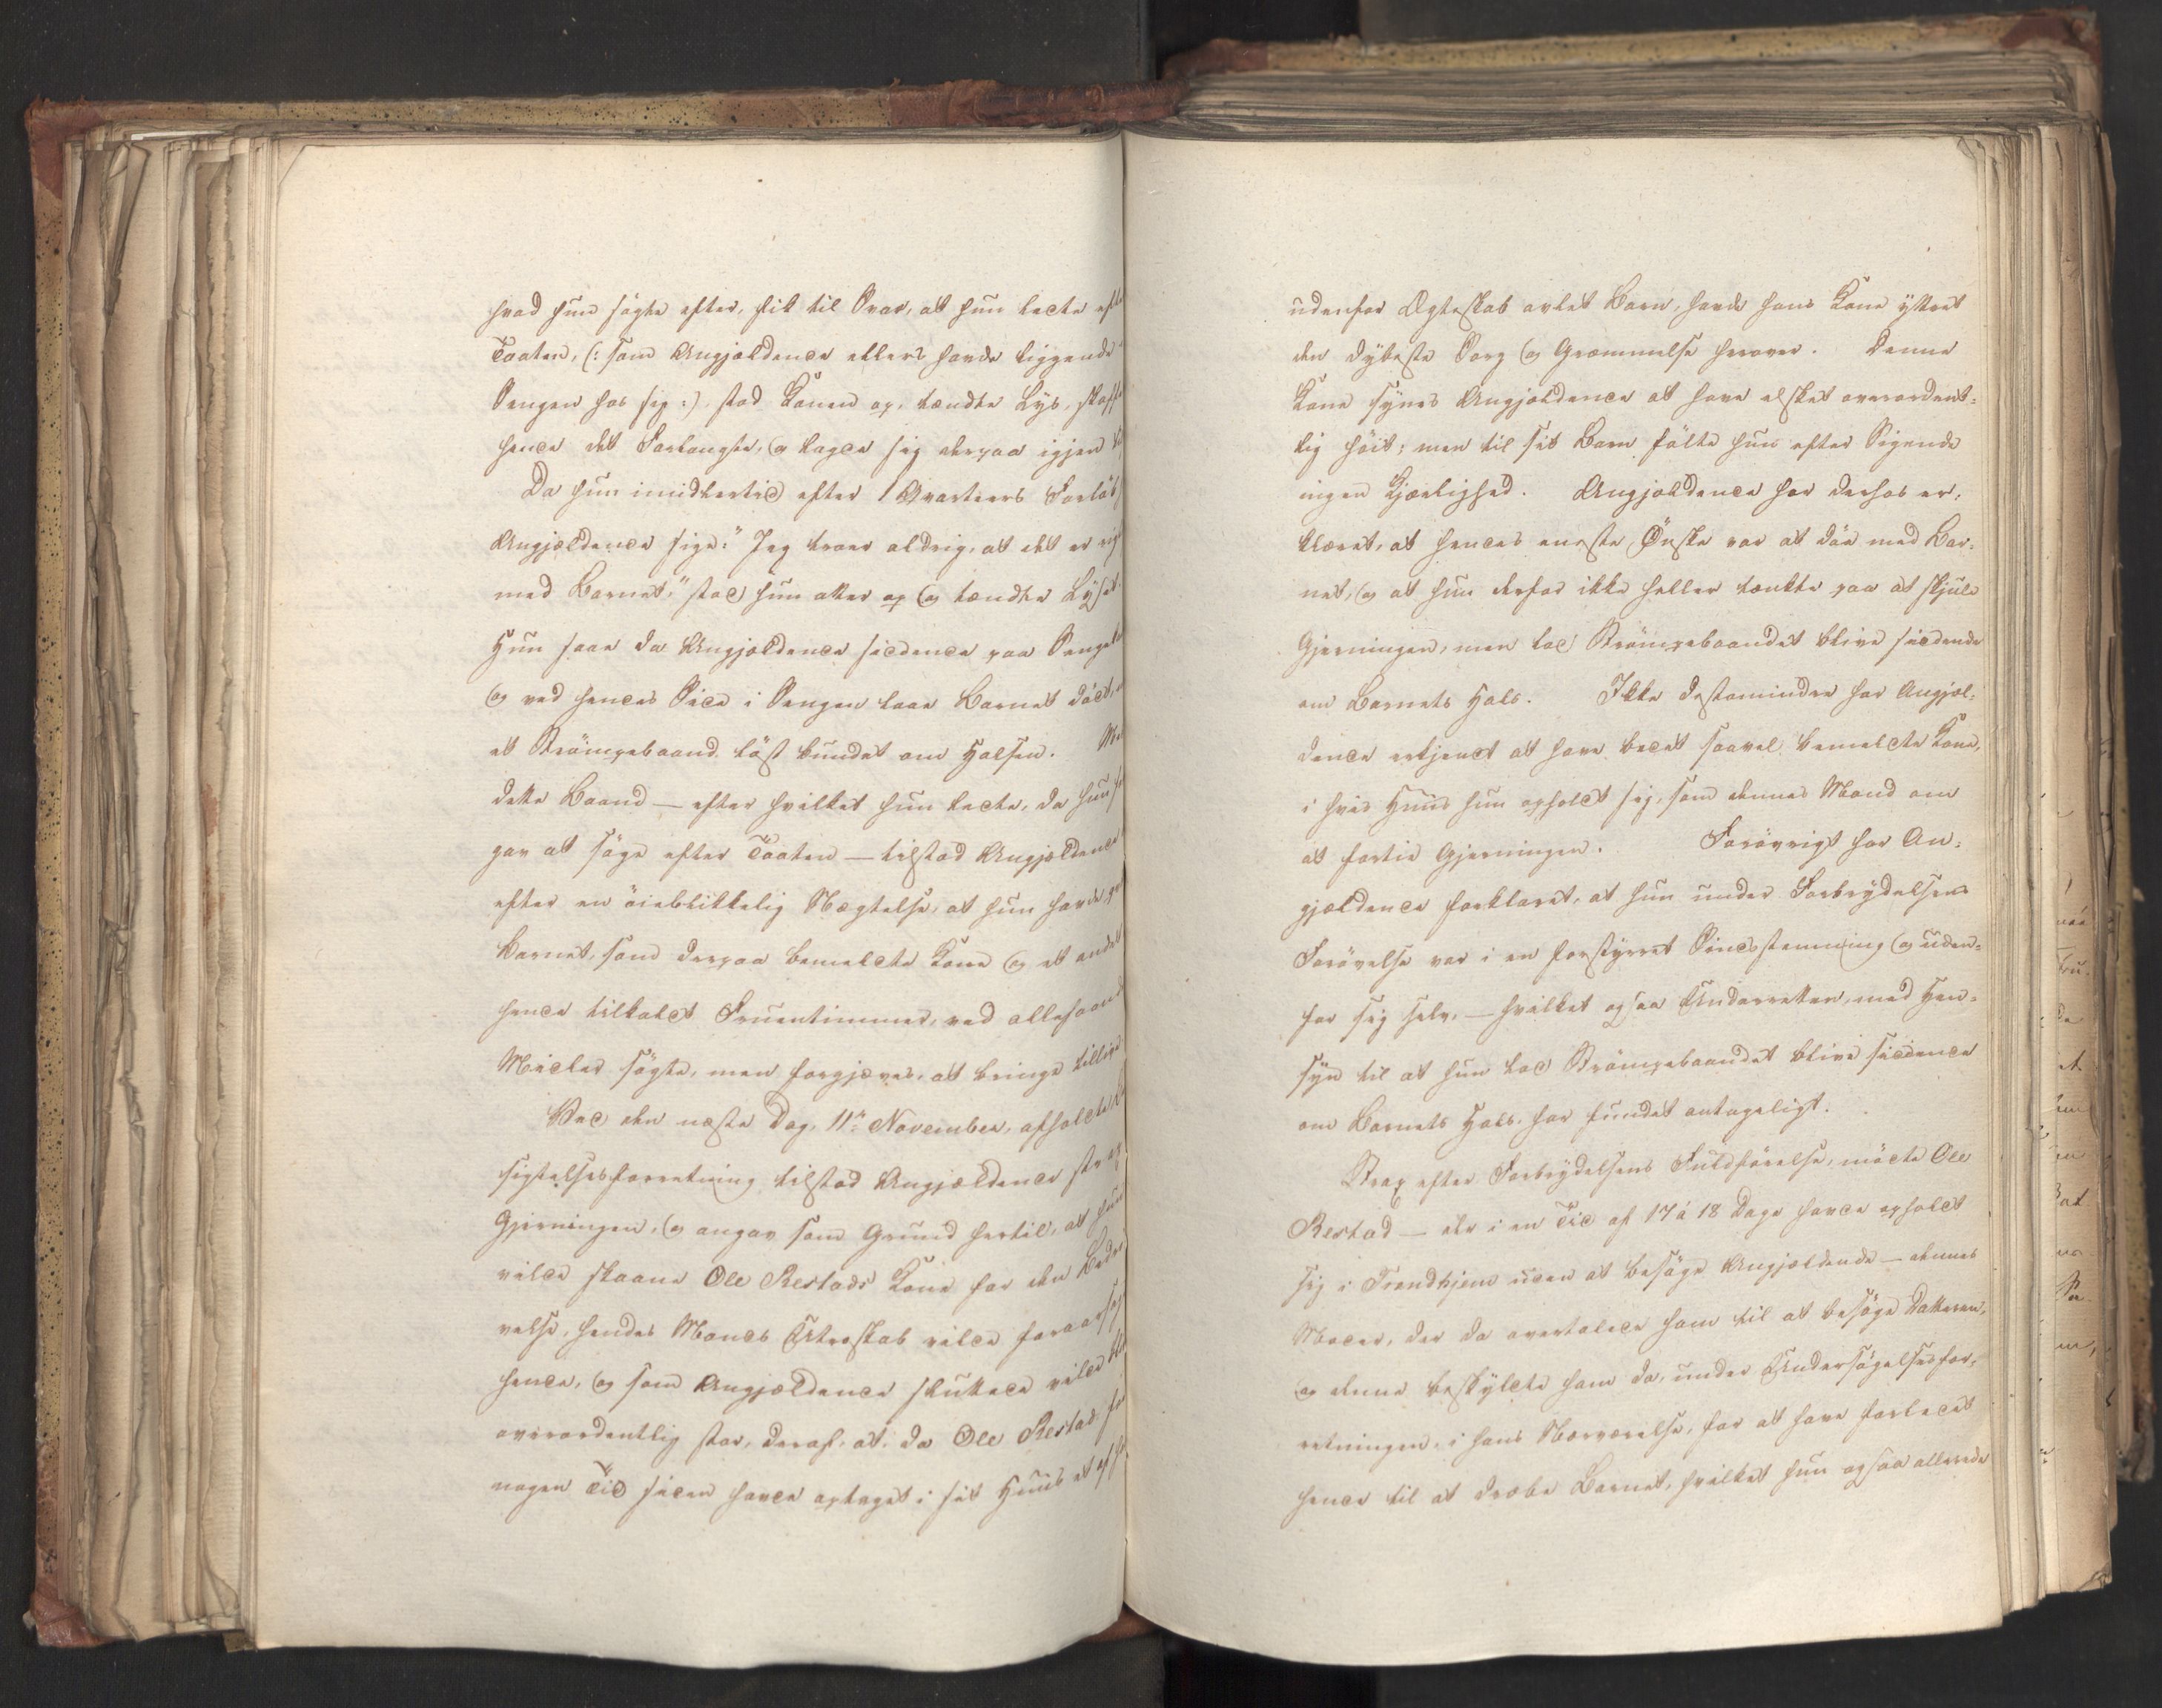 hvad hun søgte efter, fik til Svar, at hun ledte eft
Taaten, (: som Angjældende ellers havde liggende
Sengen hos sig :) stod Konen op, tændte Lys, skaff
hende det Forlangte, og lagde sig derpaa igjen
Da hun imidlertid efter 1 Qvarteers Forløb
Angjældende sige: "Jeg troer aldrig, at det er rig
med Barnet," stod hun atter op og tændte Lyset.
Hun saae da Angjældende siddende paa Senge
og ved hendes Side i Sengen laae Barnet dødt,
et Strømpebaand løst bundet om Halsen.
dette Baand – efter hvilket hun ledte, da hun
gav at søge efter Taaten – tilstod Angjældende
efter en øieblikkelig Nægtelse, at hun havde
Barnet, som derpaa bemeldte Kone og et andet
hende tilkaldt Fruentimmer, ved allehaand
Midler søgte, men forgjæves, at bringe tillive
Ved den næste Dag, 11te November, afholdte
sigtelsesforretning tilstod Angjældende strax
Gjerningen, og angav som Grund hertil, at hun
vilde skaane Ole Restads Kone for den Bedrø
velse, hendes Mands Utroskab vilde foraarsag
hende, og som Angjældende sluttede vilde bli
overordentlig stor, deraf, at, da Ole Restad for
nogen Tid siden havde optaget i sit Huus et af
udenfor Ægteskab avlet Barn, havde hans Kone yttret
den dybeste Sorg og Græmmelse herover. Denne
Kone synes Angjældende at have elsket overordent-
lig høit; men til sit Barn følte hun efter Sigende
ingen Kjærlighed. Angjældende har derhos er-
klæret, at hendes eneste Ønske var at døe med Bar-
net, og at hun derfor ikke heller tænkte paa at skjule
Gjerningen, men lod Strømpebaandet blive siddende
om Barnets Hals. Ikke destomindre har Angjæl-
dende erkjendt at have bedet saavel bemeldte Kone,
i hvis Huus hun opholdt sig, som dennes Mand om
at fortie Gjerningen. Forøvrigt har An-
gjældende forklaret, at hun under Forbrydelsens
Forøvelse var i en forstyrret Sindsstemning og uden-
for sig selv, – hvilket ogsaa Underretten, med Hen-
syn til at hun lod Strømpebaandet blive siddende
om Barnets Hals, har fundet antageligt.
Strax efter Forbrydelsens Fuldførelse, mødte Ole
Restad – der i en Tid af 17 á 18 Dage havde opholdt
sig i Trondhjem uden at besøge Angjældende – dennes
Moder, der da overtalede ham til at besøge Datteren,
og denne beskyldte ham da, under Undersøgelsesfor-
retningen, i hans Nærværelse, for at have forledet
hende til at dræbe Barnet, hvilket hun ogsaa allerede